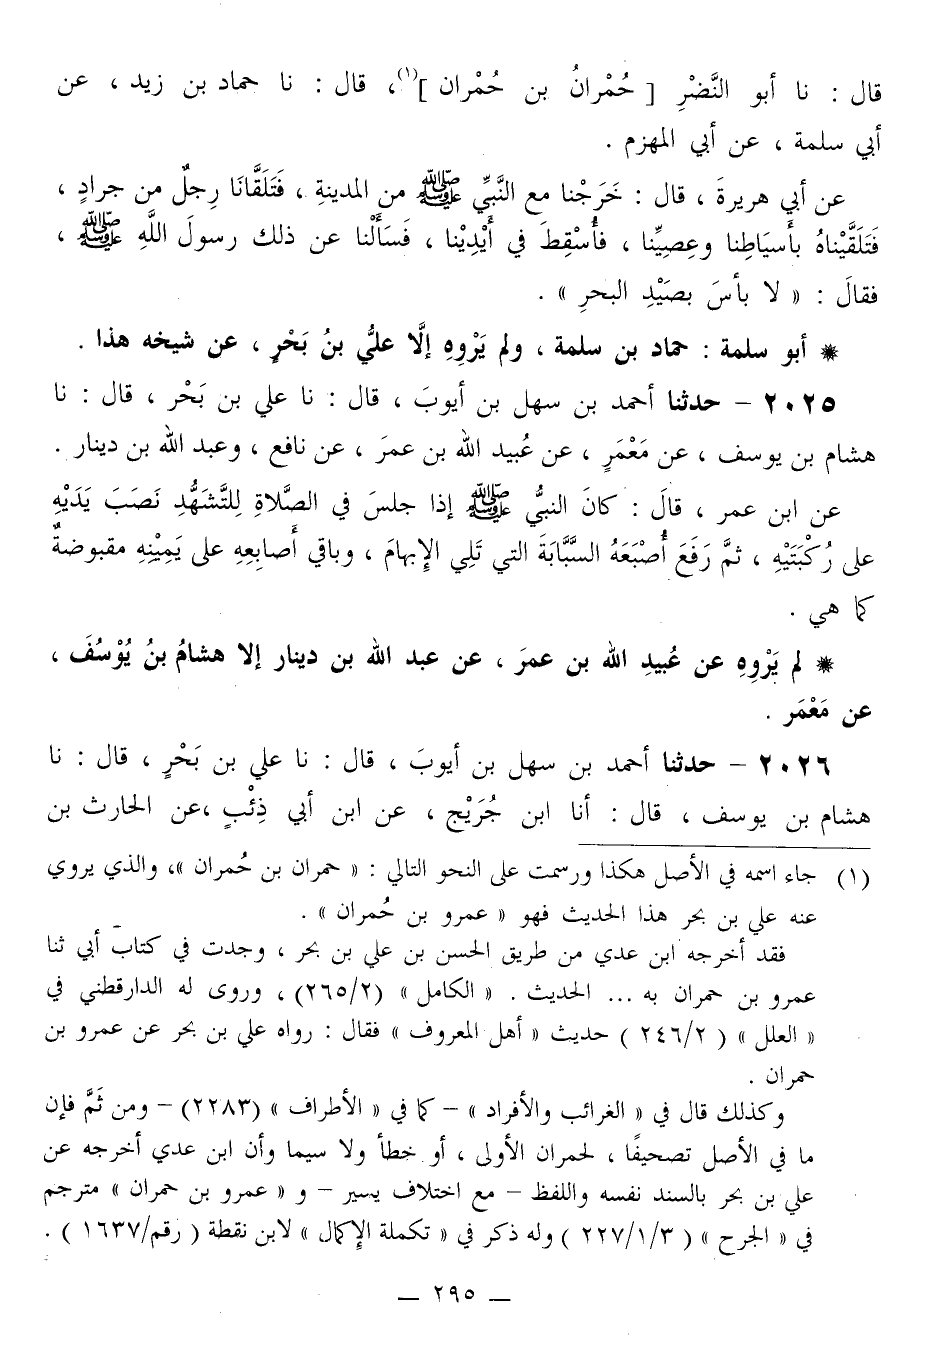 قال : نا أبو النَّضْرِ [ حُمْرانُ بن حُمْران ](١)، قال : نا حماد بن زيد ، عن
أبي سلمة ، عن أبي المهزم .
عن أبي هريرةَ ، قال : خَرَجْنا مع النَّبيِّ ﷺ من المدينةِ ، فَتَلَقَّانَا رِجلٌ من جرادٍ ،
فَتَلَقَّيْناهُ بأَسيَاطِنا وعِصِيِّنا ، فأُسْقِطَ في أَيْدِيْنا ، فَسَأَلْنا عن ذلك رسولَ اللَّهِ ﷺ ،
فقالَ : « لا بأسَ بصَيْدِ البحرِ » .
* أبو سلمة : حماد بن سلمة ، ولم يَرْوِهِ إلَّا عليُّ بنُ بَحْرٍ ، عن شيخه هذا .
٢٠٢٥ – حدثنا أحمد بن سهل بن أيوبَ ، قال : نا علي بن بَحْر ، قال : نا
هشام بن يوسف ، عن مَعْمَرٍ ، عن عُبيد الله بن عمرَ ، عن نافع ، وعبد الله بن دينار .
عن ابن عمر ، قالَ : كانَ النبيُّ ﷺ إذا جلسَ في الصَّلاةِ لِلتَّشَهُّدِ نَصَبَ يَدَيْهِ
على رُكْبَتَيْهِ ، ثمَّ رَفَعَ أُصْبَعَهُ السَّبَّابَةَ التي تَلِي الإبهامَ ، وباقي أَصابِعِهِ على يَمِيْنِهِ مقبوضةٌ
كما هي .
* لم يَرْوِهِ عن عُبيدِ الله بن عمرَ ، عن عبد الله بن دينار إلا هشامُ بنُ يُوْسُفَ ،
عن مَعْمَر .
٢٠٢٦ – حدثنا أحمد بن سهل بن أيوبَ ، قال : نا علي بن بَحْرٍ ، قال : نا
هشام بن يوسف ، قال : أنا ابن جُرَيْج ، عن ابن أبي ذِئْبٍ ،عن الحارث بن
(١) جاء اسمه في الأصل هكذا ورسمت على النحو التالي : « حمران بن حُمران »، والذي يروي
عنه علي بن بحر هذا الحديث فهو « عمرو بن حُمران » .
فقد أخرجه ابن عدي من طريق الحسن بن علي بن بحر ، وجدت في كتاب أبي ثنا
عمرو بن حمران به ... الحديث . « الكامل » (٢/ ٢٦٥) ، وروى له الدارقطني في
« العلل » ( ٢/ ٢٤٦ ) حديث « أهل المعروف » فقال : رواه علي بن بحر عن عمرو بن
حمران .
وكذلك قال في « الغرائب والأفراد » – كما في « الأطراف » (٢٢٨٣) – ومن ثَمَّ فإن
ما في الأصل تصحيفًا ، لحمران الأولى ، أو خطأ ولا سيما وأن ابن عدي أخرجه عن
علي بن بحر بالسند نفسه واللفظ – مع اختلاف يسير – و « عمرو بن حمران » مترجم
في « الجرح » ( ٣/ ١/ ٢٢٧ ) وله ذكر في « تكملة الإكمال » لابن نقطة ( رقم/ ١٦٣٧ ) .
– ٢٩٥ –